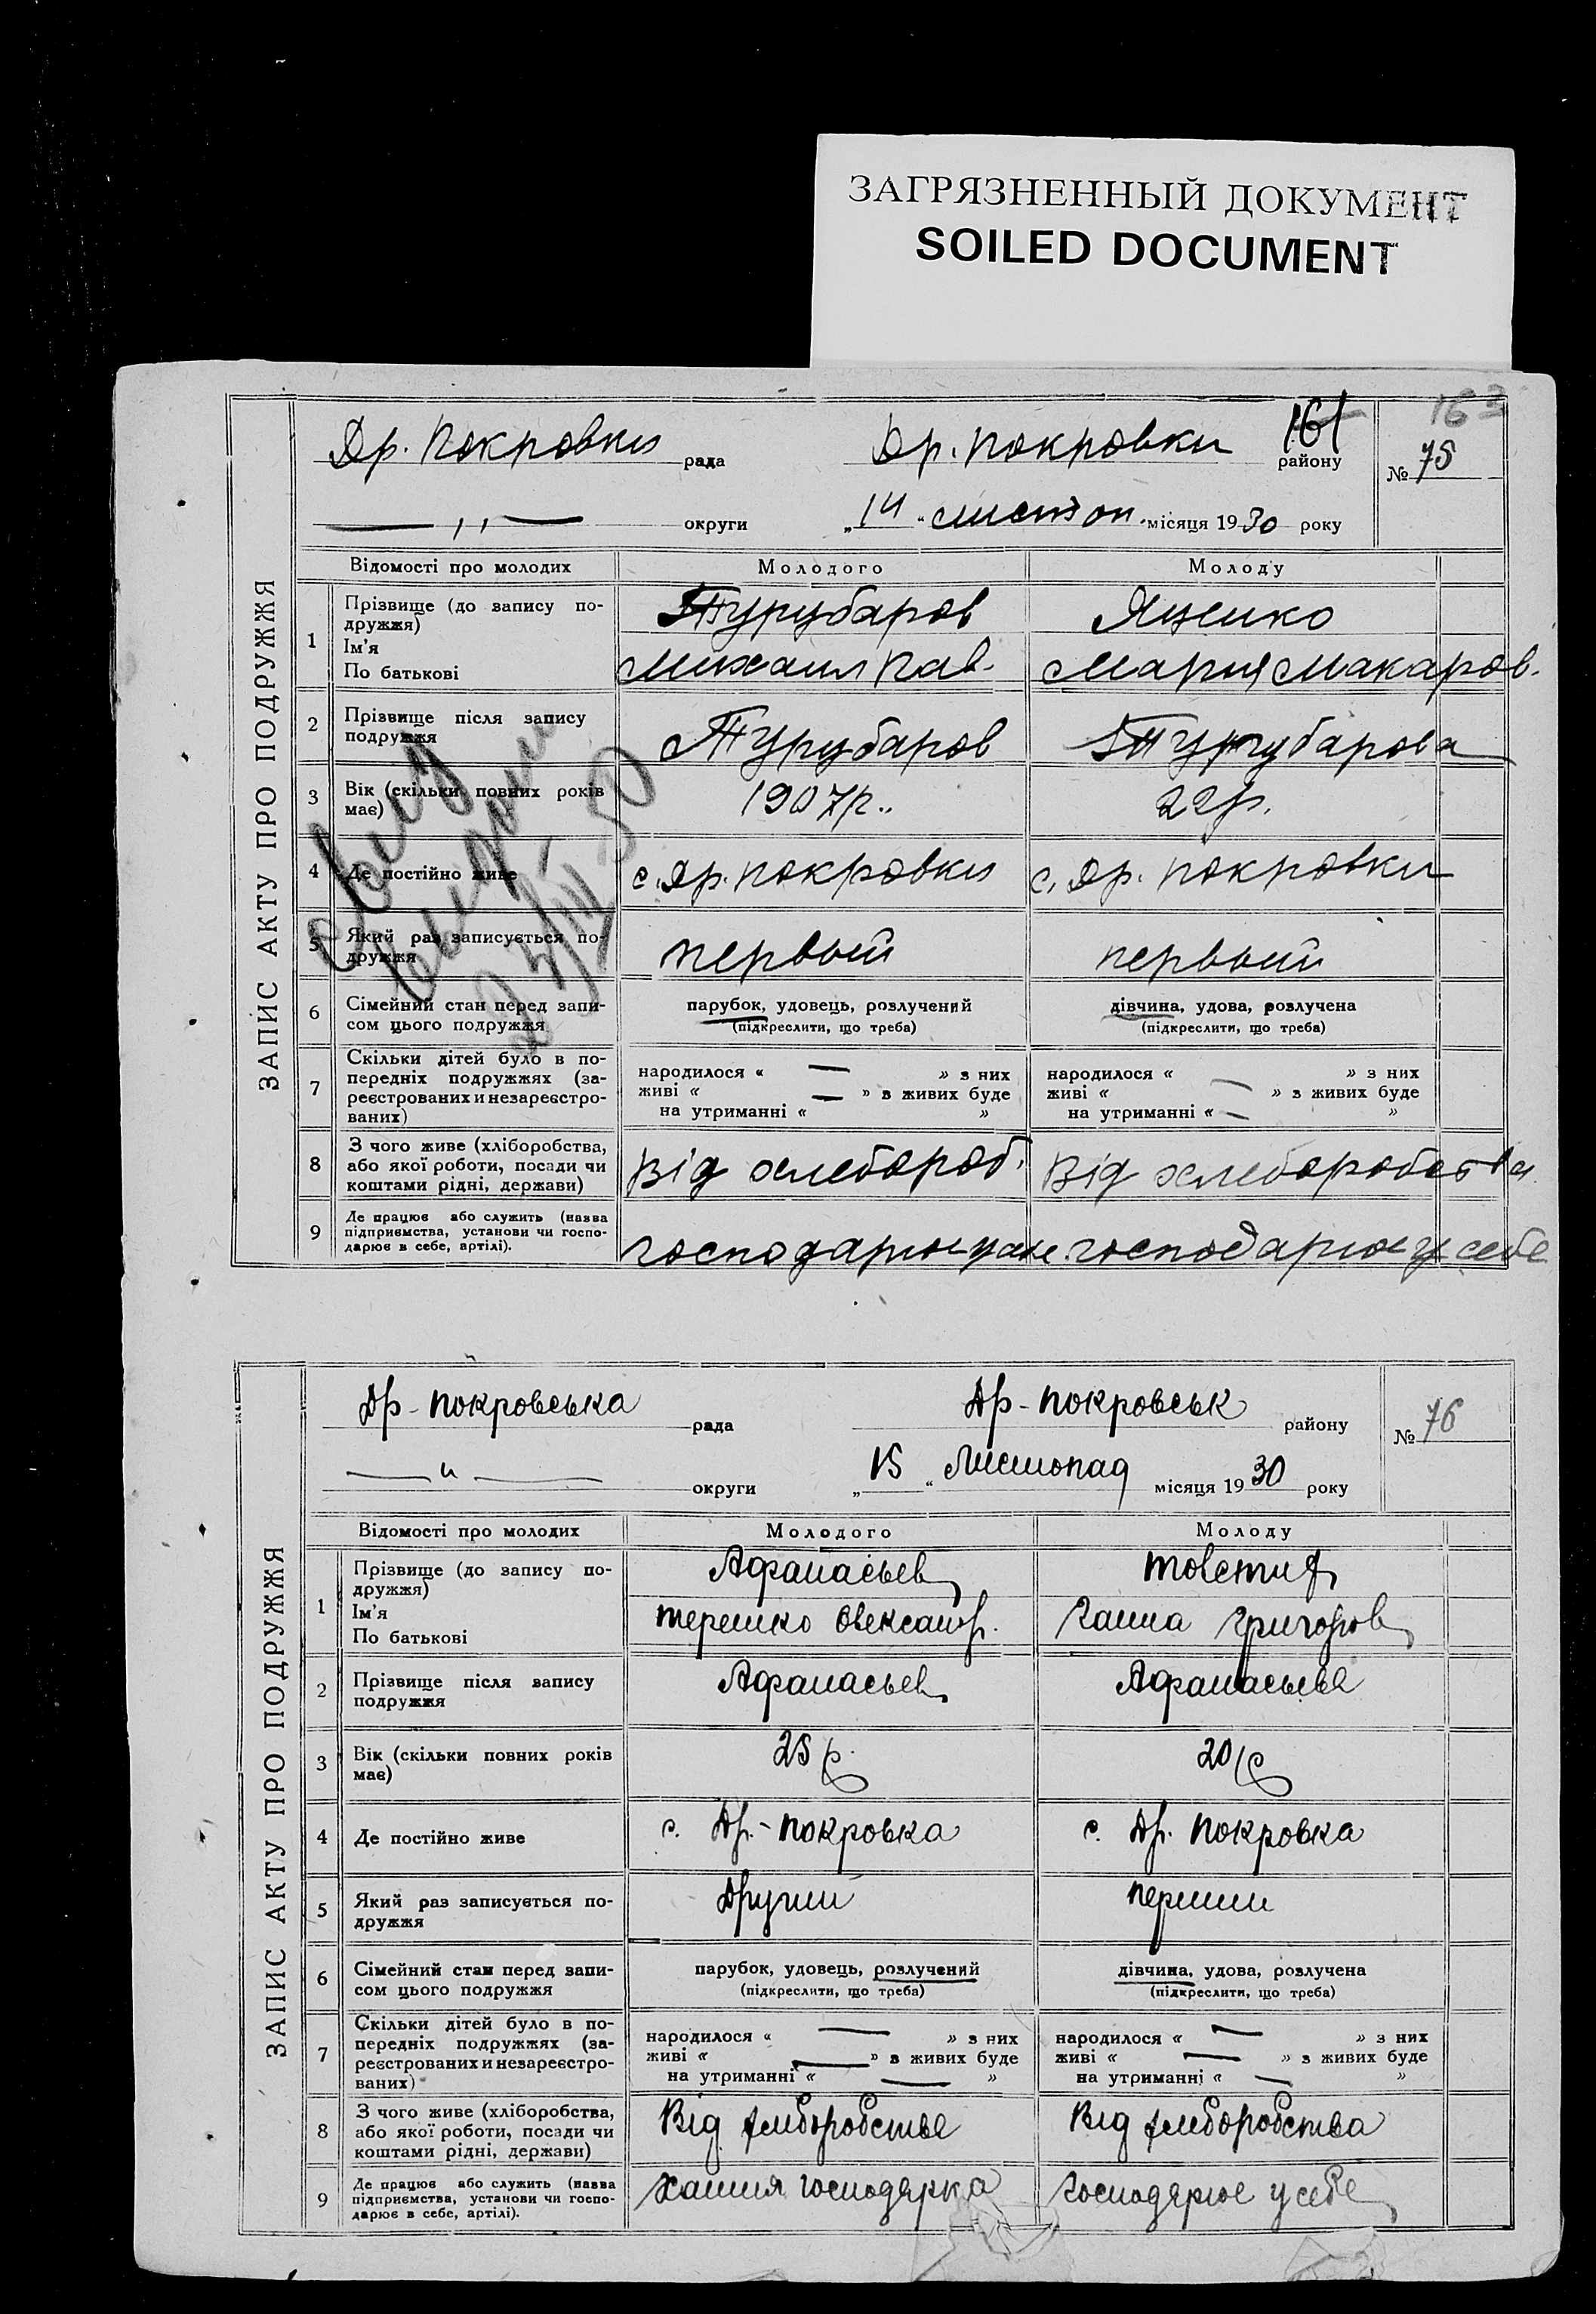 ЗАГРЯЗНЕННЫЙ ДОКУМЕНТ
SOILED DOCUMENT
163
161
Др. Покровки рада Др. Покровки району № 75
— „ — округи „14“ листоп. місяця 1930 року
ЗАПИС АКТУ ПРО ПОДРУЖЖЯ
Відомості про молодих Молодого Молоду
1 Прізвище (до запису подружжя) Турубаров Яценко
Ім'я
По батькові Михаил Пав. Мария Макаров.
2 Прізвище після запису подружжя Турубаров Турубарова
3 Вік (скільки повних років має) 1907р. 22р.
4 Де постійно живе с. Др. Покровки с. Др. Покровки
5 Який раз записується подружжя первый первый
6 Сімейний стан перед записом цього подружжя парубок, удовець, розлучений дівчина, удова, розлучена
(підкреслити, що треба) (підкреслити, що треба)
7 Скільки дітей було в попередніх подружжях (зареєстрованих и незареєстрованих)
народилося « — » з них народилося « » з них
живі « — » з живих буде живі « — » з живих буде
на утриманні « » на утриманні « — »
8 З чого живе (хліборобства, або якої роботи, посади чи коштами рідні, держави) Від хлебороб. Від хлеборобства
9 Де працює або служить (назва підприємства, установи чи господарює в себе, артілі). господарює у себе господарює у себе
Др-Покровська рада Др-Покровськ району № 76
— „ — округи „15“ Листопад місяця 1930 року
ЗАПИС АКТУ ПРО ПОДРУЖЖЯ
Відомості про молодих Молодого Молоду
1 Прізвище (до запису подружжя) Афанасьев
Ім'я
По батькові Терешко Олександр. Ганна Григоров
2 Прізвище після запису подружжя Афанасьев Афанасьева
3 Вік (скільки повних років має) 25 р. 20 р
4 Де постійно живе с. Др.-Покровка с. Др. Покровка
5 Який раз записується подружжя Другий перший
6 Сімейний стан перед записом цього подружжя парубок, удовець, розлучений дівчина, удова, розлучена
(підкреслити, що треба) (підкреслити, що треба)
7 Скільки дітей було в попередніх подружжях (зареєстрованих и незареєстрованих)
народилося « — » з них народилося « — » з них
живі « — » з живих буде живі « — » з живих буде
на утриманні « — » на утриманні « — »
8 З чого живе (хліборобства, або якої роботи, посади чи коштами рідні, держави) Від хліборобства Від хліборобства
9 Де працює або служить (назва підприємства, установи чи господарює в себе, артілі). господарка Господарює у себе